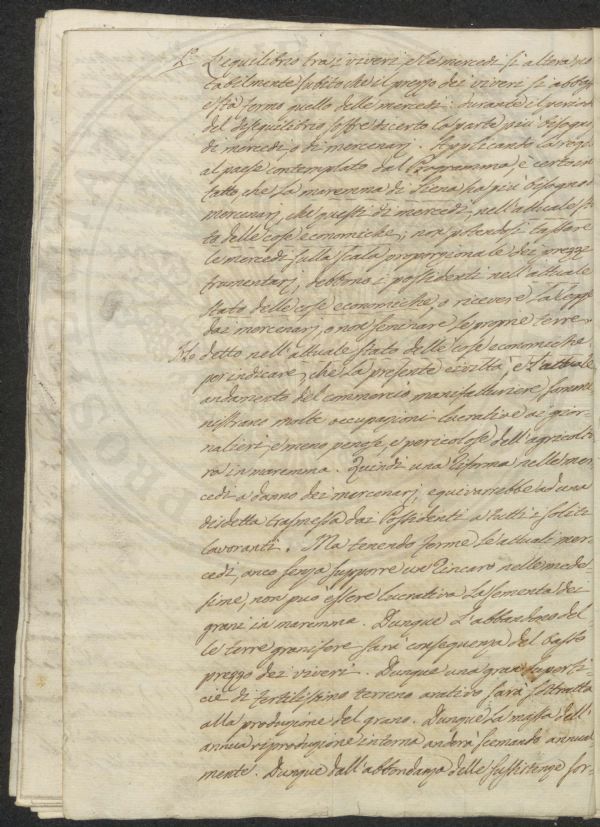 1.° L'equilibrio tra i viveri, e le mercedi si altera no
tabilmente subito che il prezzo dei viveri si abbassi
e stà fermo quello delle mercedi: durante il period
del disequilibrio soffre di certo la parte più bisogno
di mercedi, o di mercenarj. Applicando la rego
al paese contemplato dal Programma, è certo in
fatto, che la maremma di Siena ha più bisogno di
mercenarj, che questi di mercedi, nell'attuale sta
to delle cose economiche; non potendosi tassare
le mercedi sulla scala proporzionale dei prezzi
frumentarj, debbono i possidenti nell'attuale
stato delle cose economiche, o ricevere la legge
dai mercenarj, o non seminare le proprie terre.
Ho detto nell'attuale stato delle cose economiche,
per indicare, che la presente civiltà, e l'attuale
andamento del commercio manifatturiere sommi
nistrano molte occupazioni lucrative ai gior
nalieri, e meno penose, e pericolose dell'agricoltu
ra in maremma. Quindi una riforma nelle mer
cedi a danno dei mercenarj, equivarrebbe ad una
disdetta trasmessa dai Possidenti a tutti i soliti
lavoranti. Ma tenendo ferme le attuali mer
cedi, anco senza supporre un rincaro nelle mede
sime, non può essere lucrativa la sementa dei
grani in maremma. Dunque l'abbandono del
le terre granifere sarà conseguenza del basso
prezzo dei viveri. Dunque una gran superfi
cie di fertilissimo terreno arativo sarà sottratta
alla produzione del grano. Dunque la massa dell'
annua riproduzione interna anderà scemando annual
mente. Dunque dall'abbondanza delle sussistenze for-